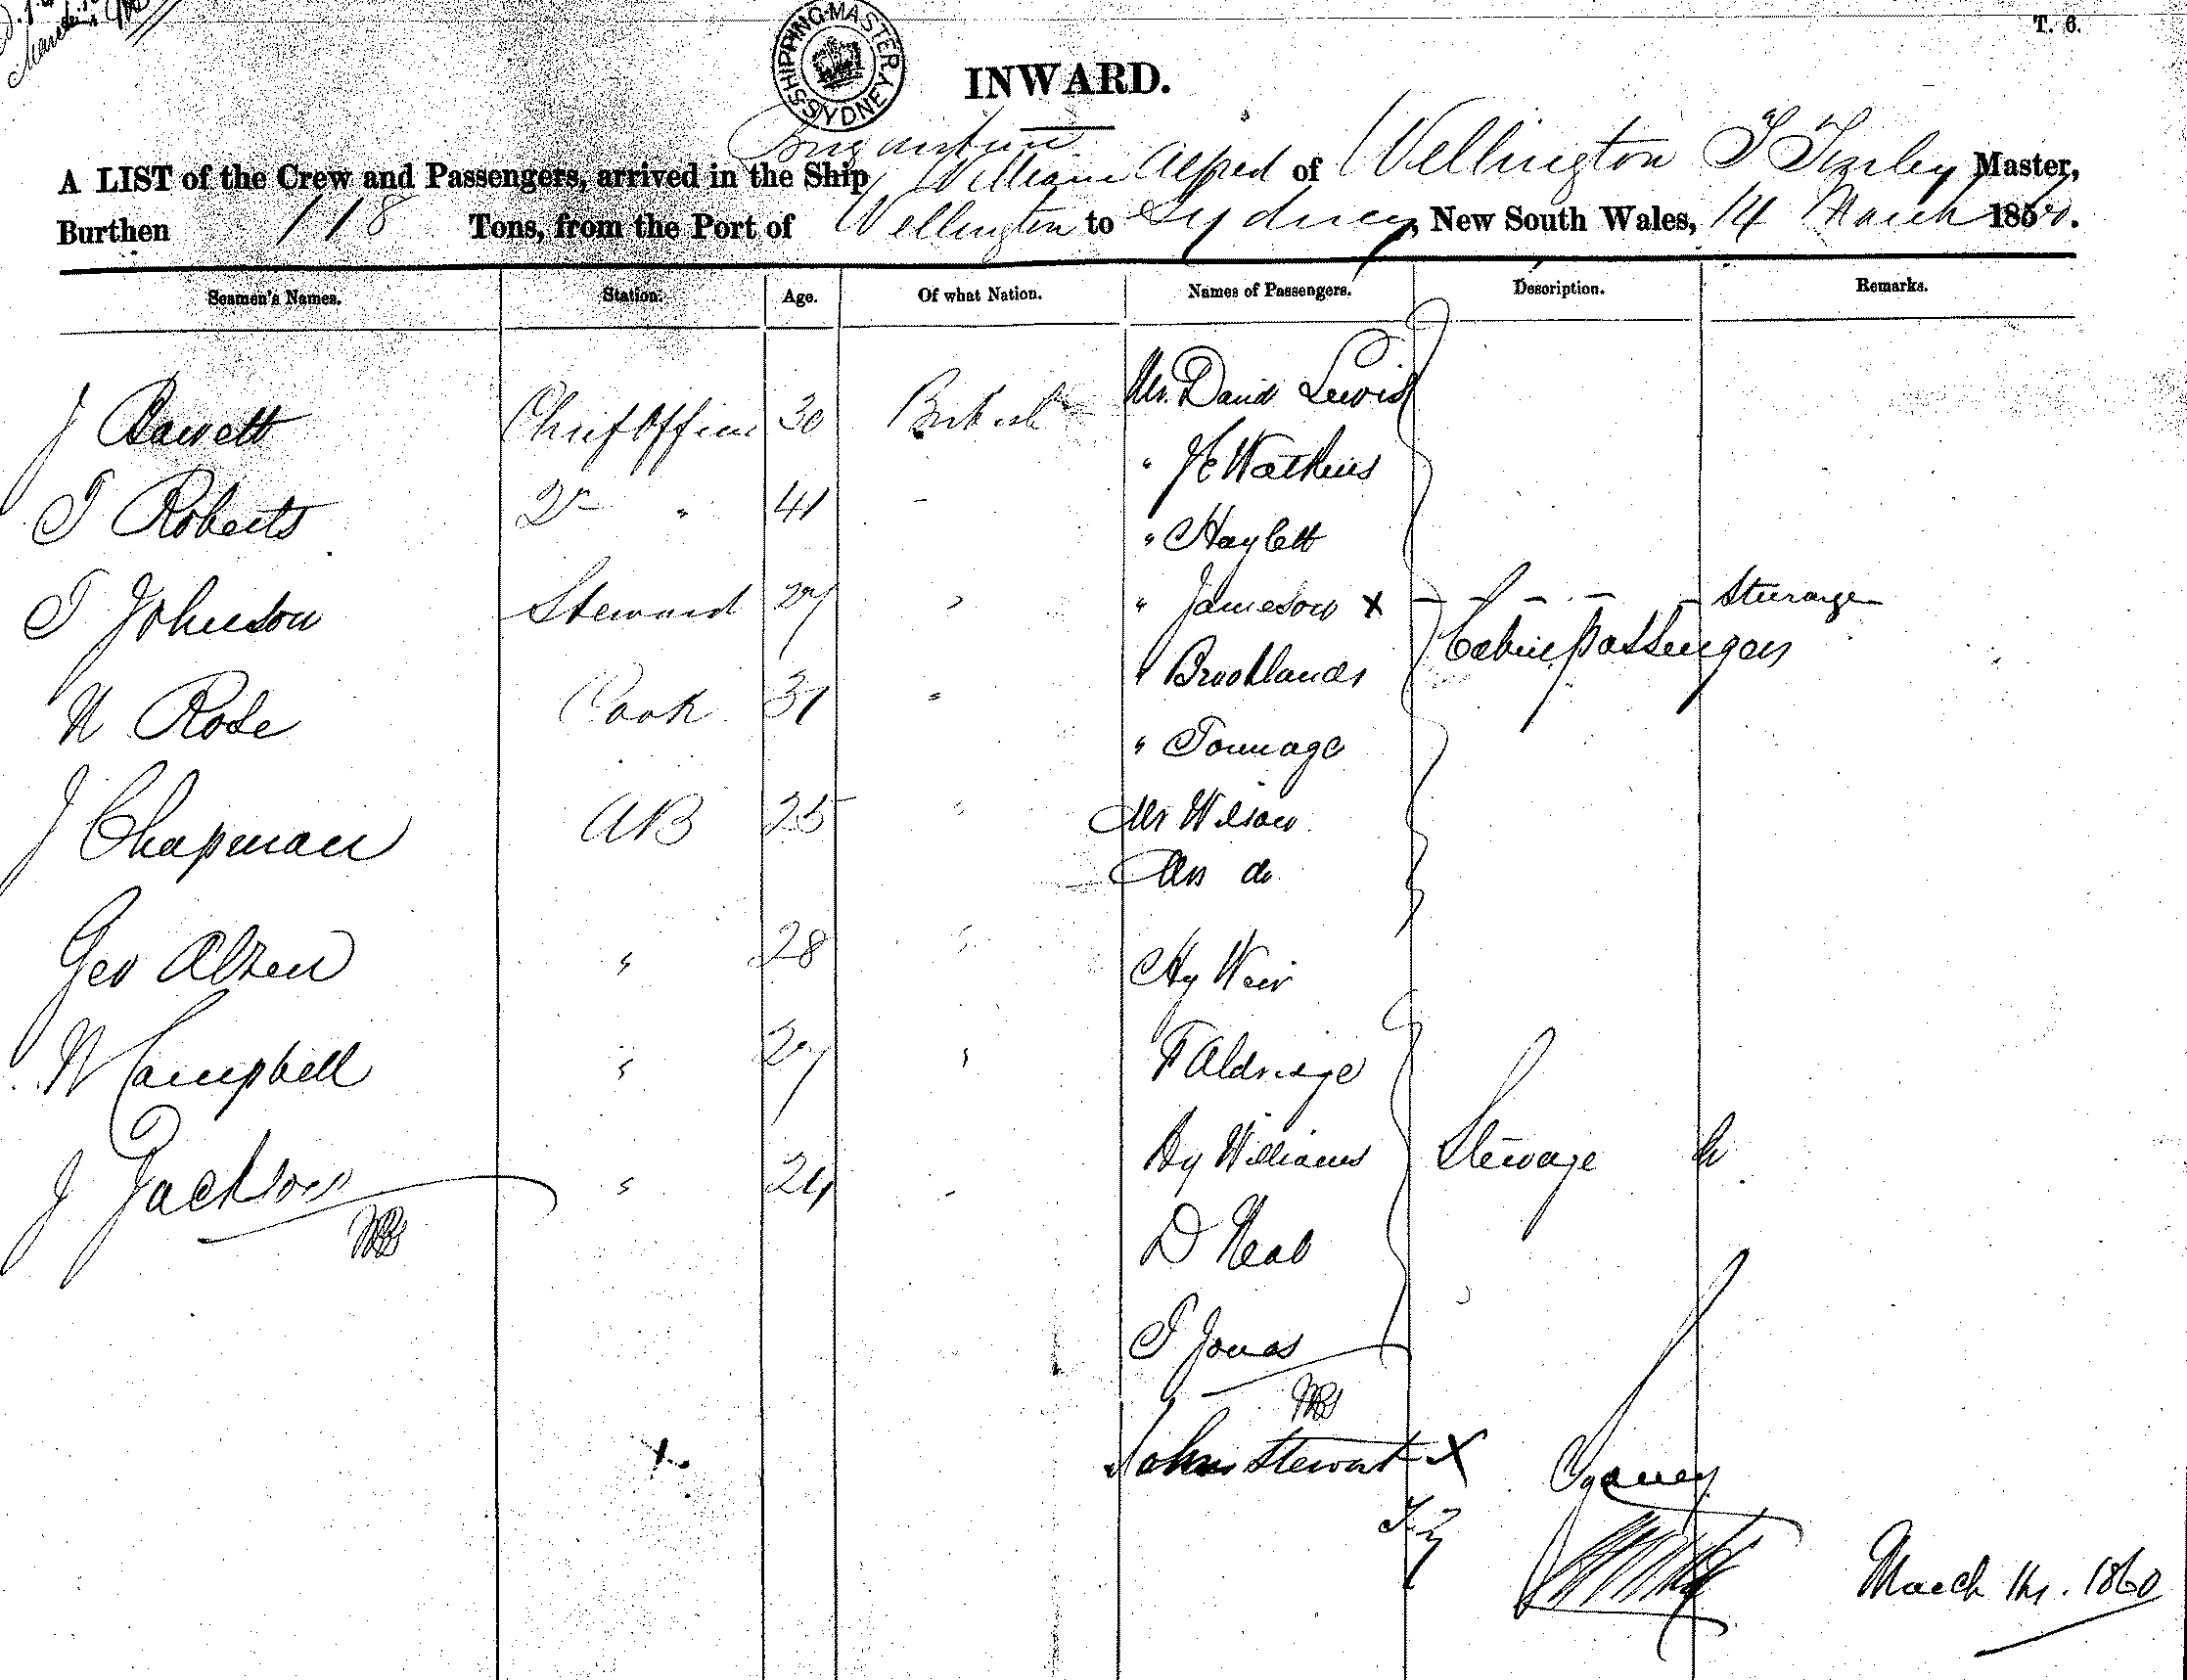 T. 6.
SHIPPING MASTER SYDNEY
INWARD.
Brigantine
A LIST of the Crew and Passengers, arrived in the Ship William Alfred of Wellington Master,
Burthen 118 Tons, from the Port of Wellington to Sydney, New South Wales, 14 March 1860.
Seamen's Names. Station. Age. Of what Nation. Names of Passengers. Description. Remarks.
J Chief Officer 30 British Mr. David Lewis
" Watkins
T Roberts 2nd " 41 -
" Haylett
T Johnson Steward 27 " " Jameson x - - - - - Steerage
Cabin passengers
W Rose Cook 31 " " Brooklands
" Tonnage
J Chapman AB 25 " Mr Wilson
Mrs do
Geo " 28 " Hy Weir
W Campbell " 27 " F Aldridge
J Jackson " 24 " Hy Williams Steerage
D Neal
T Jonas
x John Stewart x
March 14. 1860